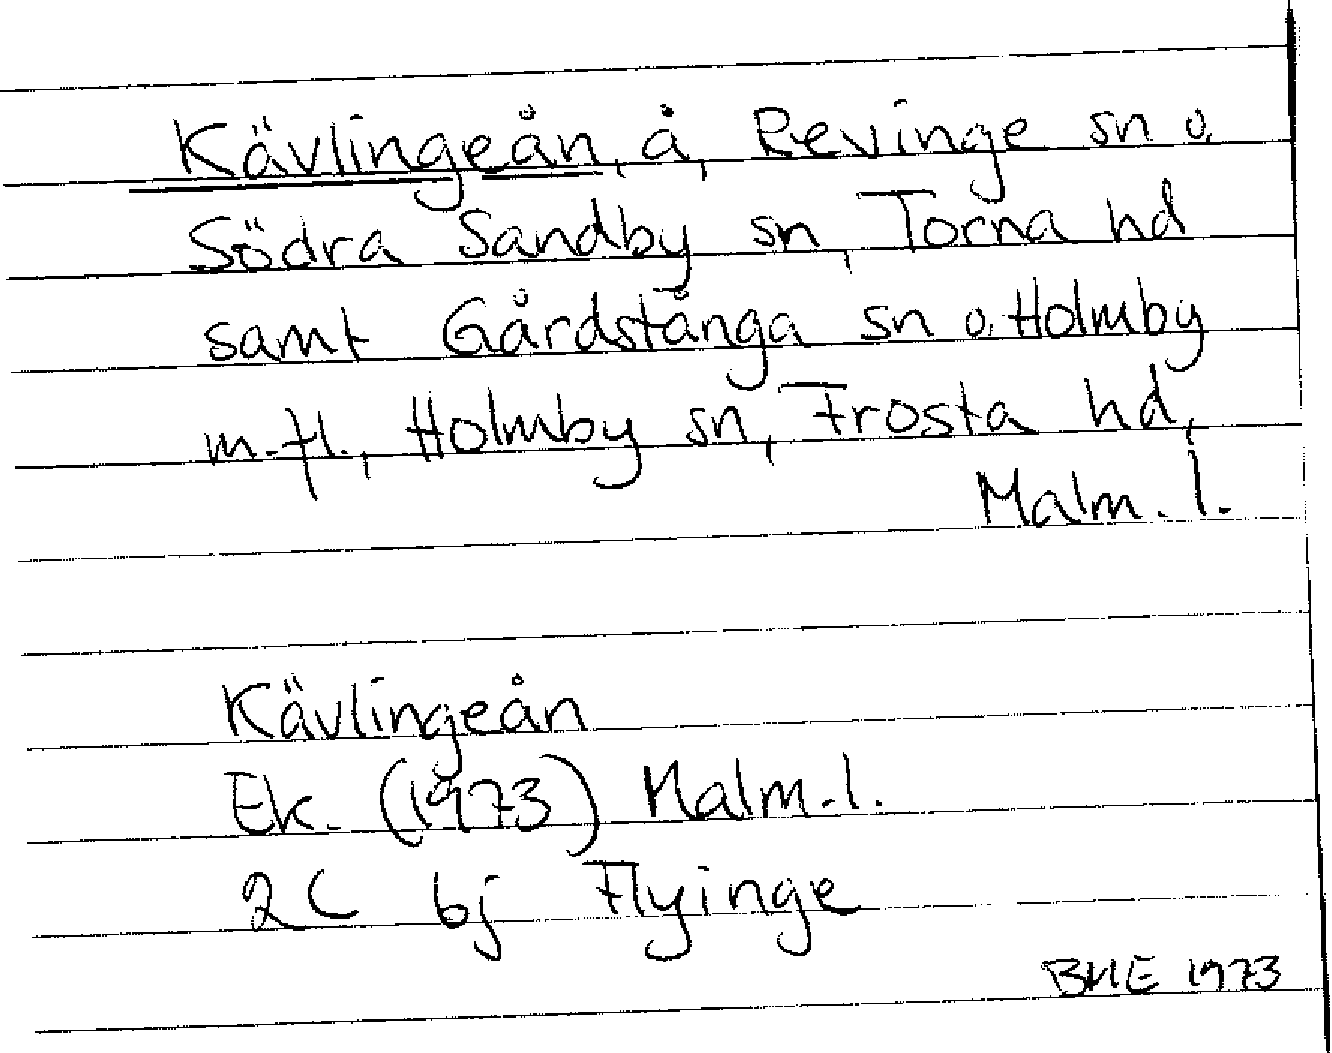 Kävlingeån, å, Revinge sn o.
Södra Sandby sn, Torna hd
samt Gårdstånga sn o. Holmby
m.fl., Holmby sn, Frosta hd,
Malm. l.
Kävlingeån
Ek. (1973) Malm.l.
2C bj Flyinge
BME 1973